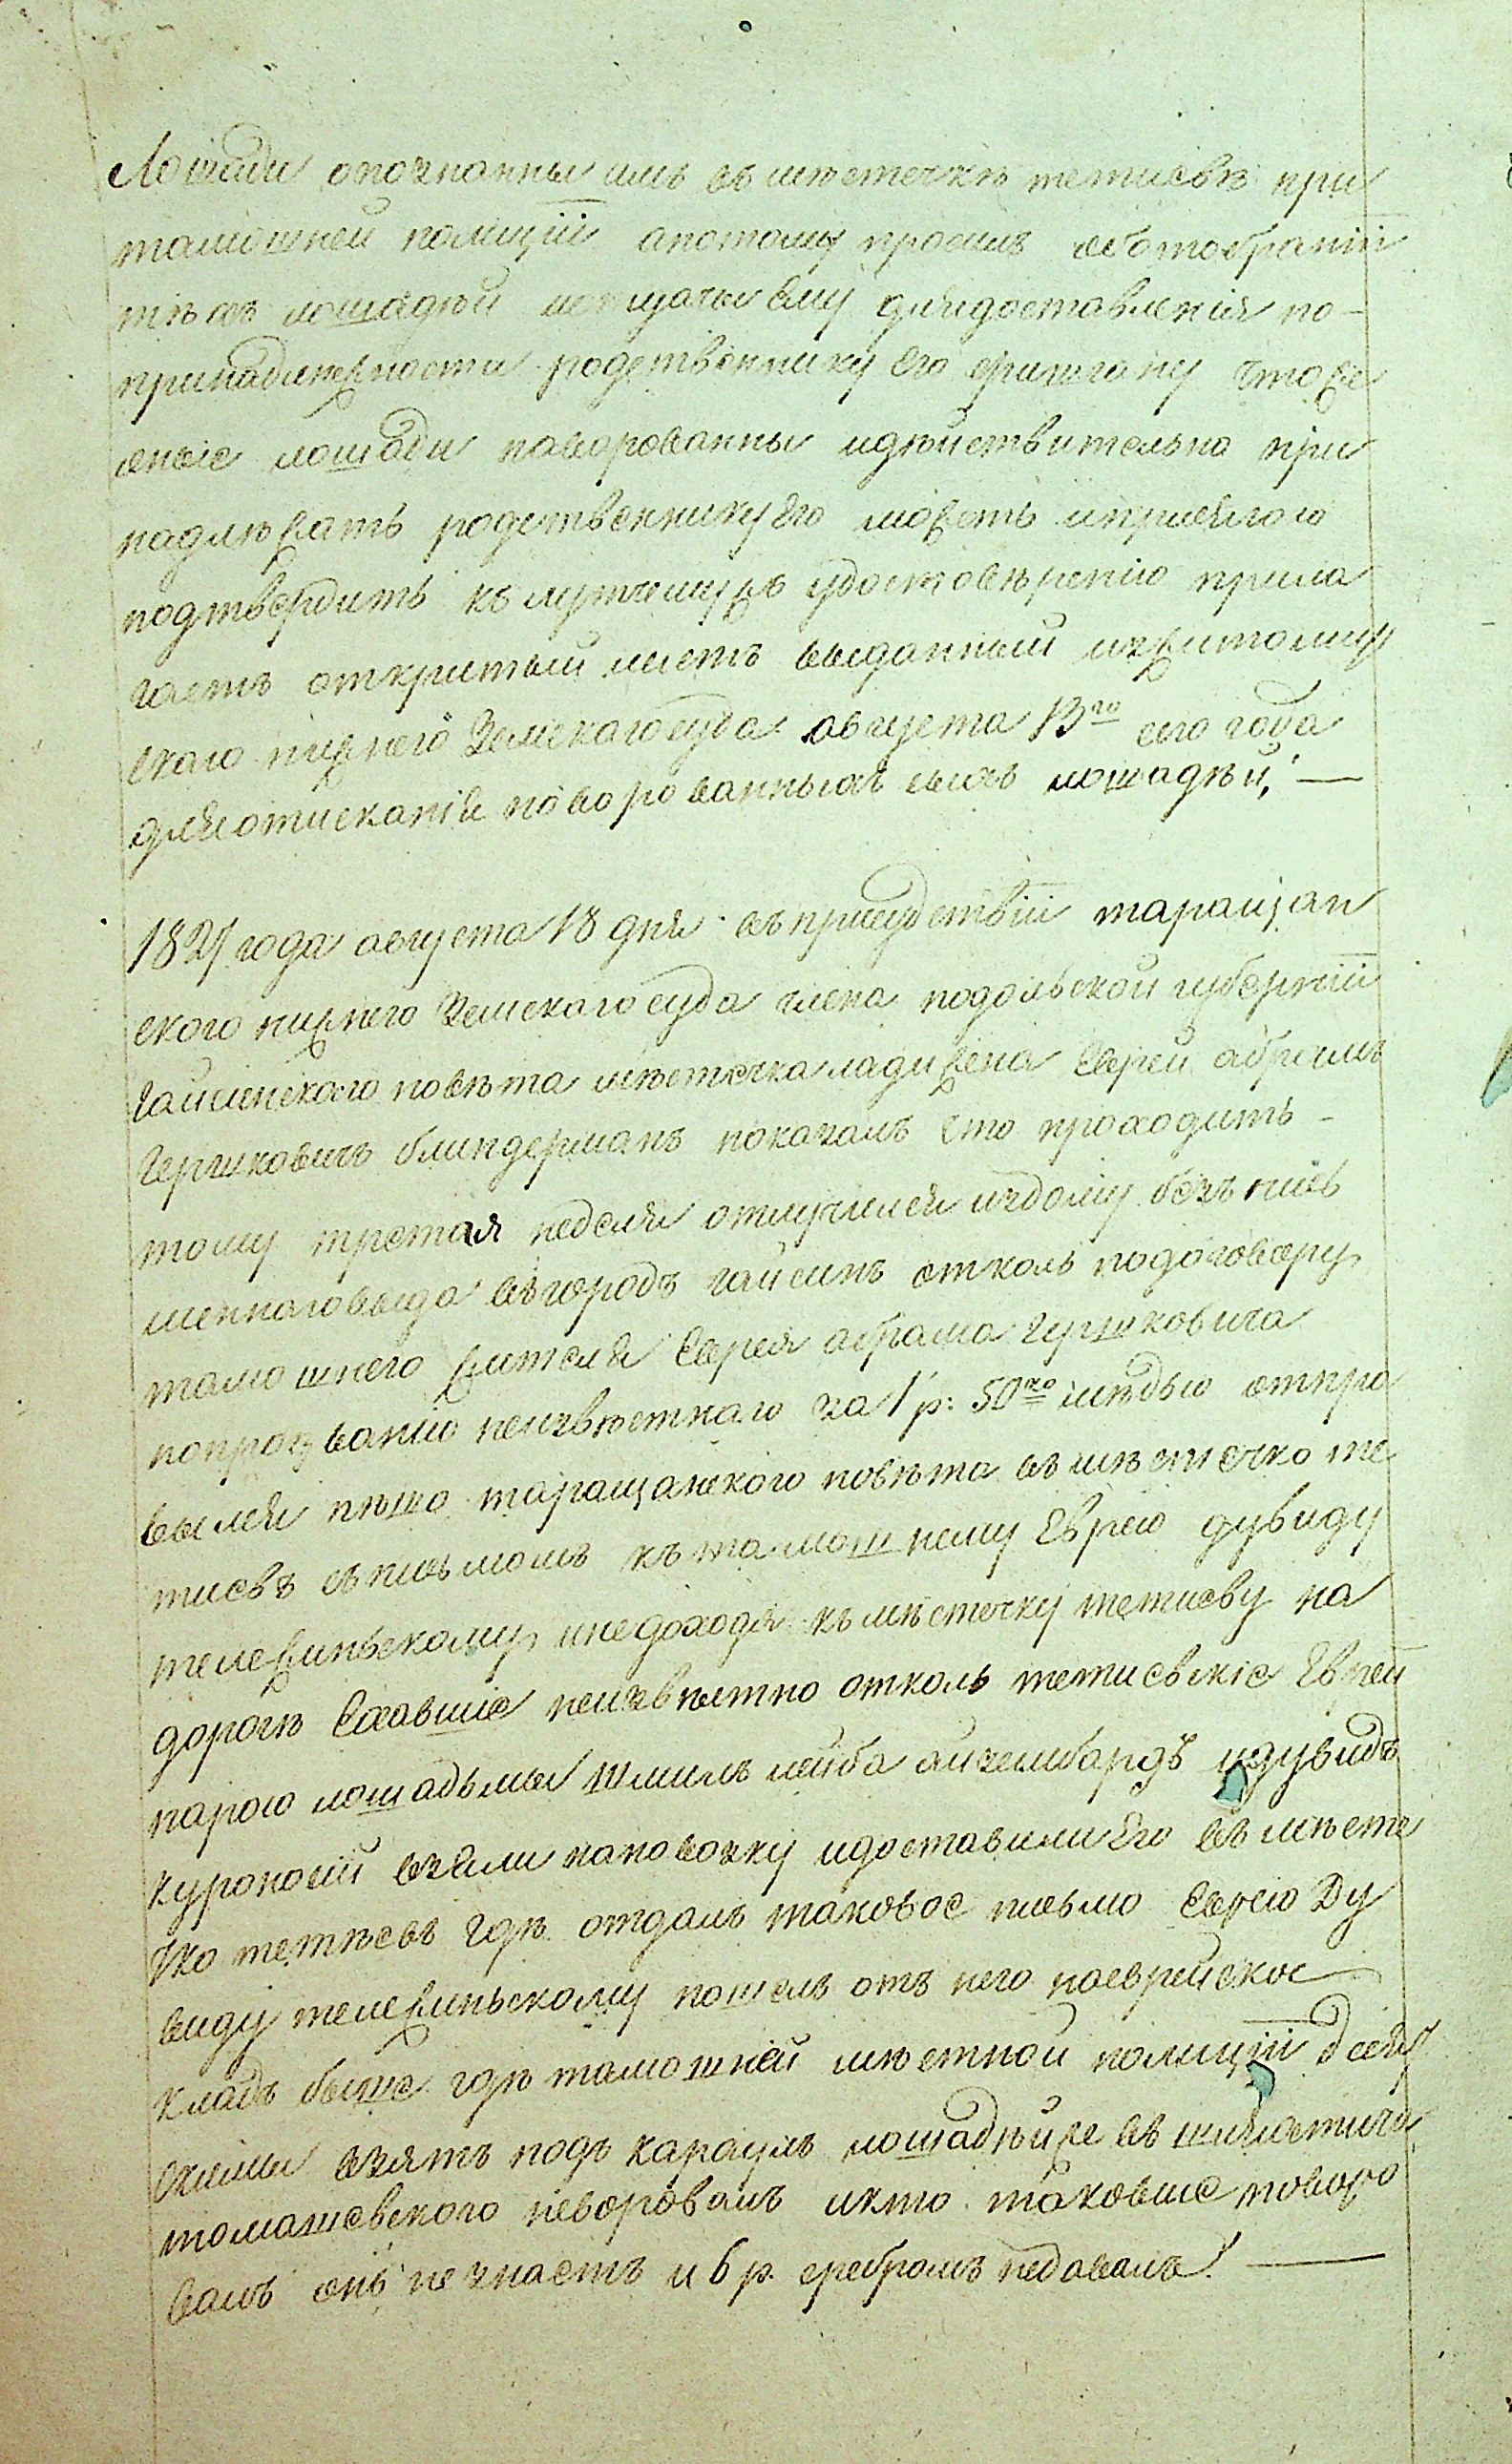 Лошади опознанны имъ въ мѣстечкѣ тетиевѣ при
тамошней полиціи апотому просилъ оботобраніи
тѣхъ лошадѣй иотдачы ему длядоставленія по-
принадлежности родственнику его фишману чтоже
оные лошади наворованны идѣйствительно при
надлѣжатъ родственнику Его можетъ иприсягою
подтвердить къ лутчемужъ удостовѣренію прила
гаетъ открытый листъ выданный изжитомир
скаго нижнего Земскагосуда августа 13го сего года
дляотисканія поворованныхъ сихъ лошадѣй; —
1821 года августа 18 дня въприсудствіи таращан
ского нижнего Земскагосуда члена подольской губерніи
Гайсинского повѣта мѣстечка ладижена Еврей абрамъ
Гершковичъ блиндерманъ показалъ Что проходитъ -
тому третая неделя отлучился издому безъ пись
менноговыда въгородъ гайсинъ отколь подоговору
тамошнего жителя Еврея абрама гершковича
попрозванію неизвѣстнаго за 1 р: 50ко мѣдью отпра
вылся пѣшо таращанского повѣта въ мѣстечко те
тиевъ съписьмомъ къ тамошнему Еврею дувиду
тележиньскому инедоходя къ мѣстечку тетиеву на
дорогѣ Ехавшіе неизвѣстно отколь тетиевскіе Евреи
парою лошадьмы шмиль лейба айзембардъ идувидъ
куропосій взяли наповозку идоставили Его въ мѣсте
чко тетѣевъ гдѣ отдалъ таковое письмо Еврею Ду
виду тележиньскому пошелъ отъ него поеврейское
кладбыще гдѣ тамошнѣй мѣстной полиціи
взятъ подъ караулъ лошадѣйже въ шляхтича
томашевского неворовалъ икто таковые поворо
валъ онъ не знаетъ и 6 р. сребромъ недавалъ. —